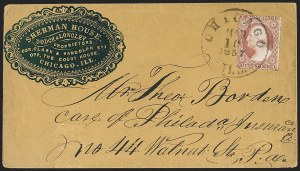 SHERMAN HOUSE
PROPRIETORS
COR. CLARK & RANDOLPH STS
OPP. THE COURT HOUSE
CHICAGO, ILL.
CHICAGO
ILL.
Mr. Theo. Borden
care of Philada Insurance
no 44 Walnut St. Pa